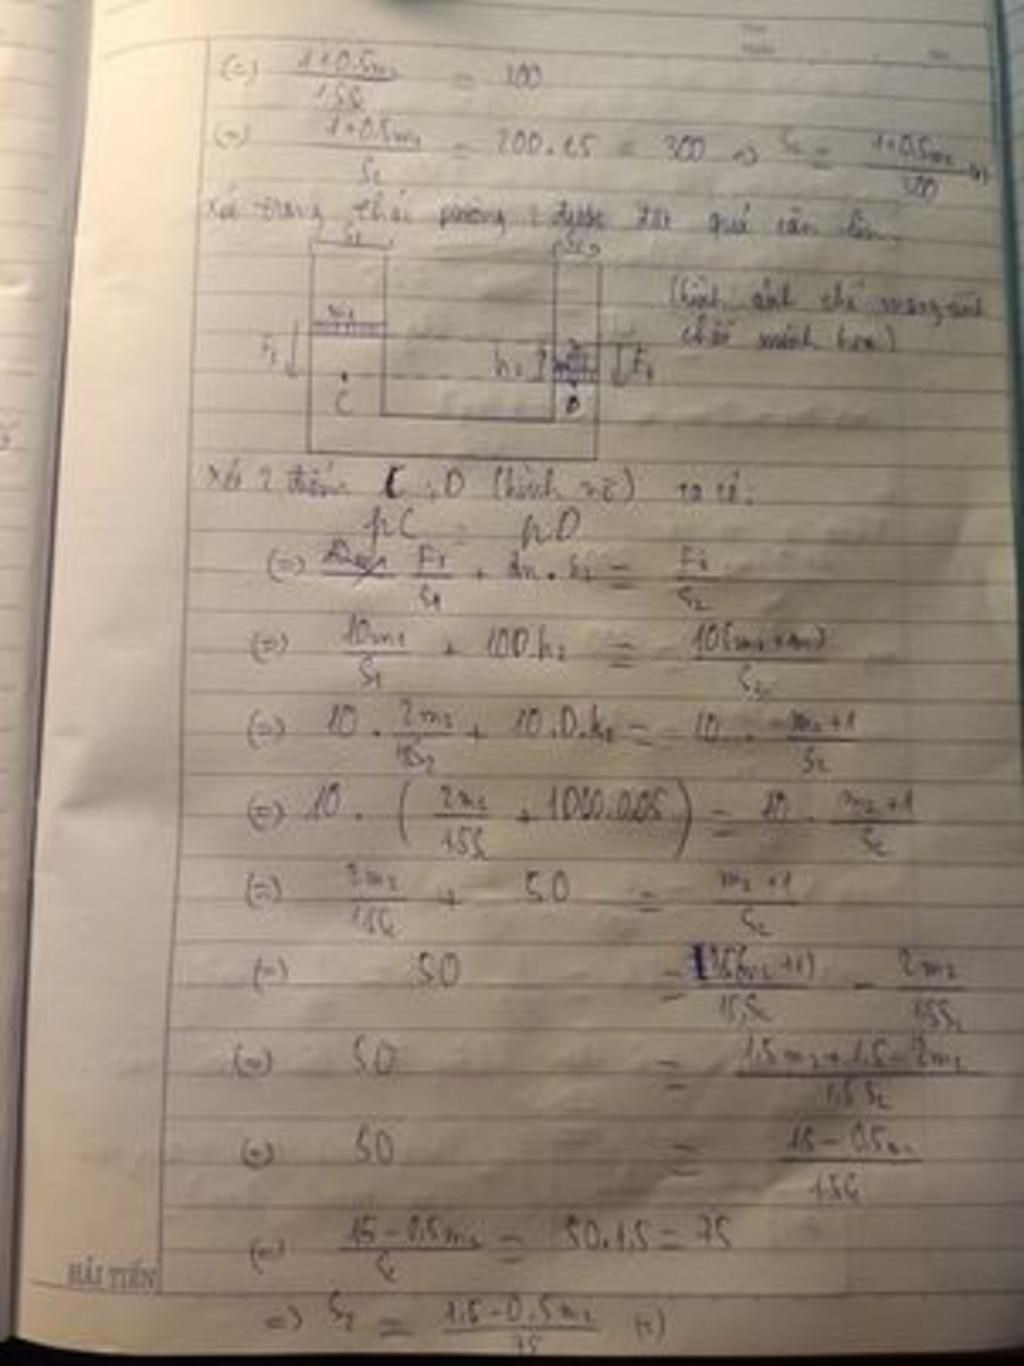 (=) \frac{1+0.5m_2}{1.5S_2} = 200
(=) \frac{1+0.5m_2}{S_2} = 200.1.5 = 300 => S_2 = \frac{1+0.5m_2}{300}
Xét trạng thái pittông 2 được đặt quả cân lên.
S_1 S_2
(hình ảnh chỉ mang tính
m_1
chất minh họa)
F_1 h_2 F_2
C D
Xét 2 điểm C, D (hình vẽ) ta có:
pC = pD
(=) \frac{F_1}{S_1} + dn.h_2 = \frac{F_2}{S_2}
(=) \frac{10m_1}{S_1} + 10D.h_2 = \frac{10(m_2+m)}{S_2}
(=) 10 . \frac{2m_2}{1.5S_2} + 10.D.h_2 = 10 . \frac{m_2+1}{S_2}
(=) 10 . ( \frac{2m_2}{1.5S_2} + 1000.0.05 ) = 10 . \frac{m_2+1}{S_2}
(=) \frac{2m_2}{1.5S_2} + 50 = \frac{m_2+1}{S_2}
(=) 50 = \frac{1.5(m_2+1)}{1.5S_2} - \frac{2m_2}{1.5S_2}
(=) 50 = \frac{1.5m_2+1.5-2m_2}{1.5S_2}
(=) 50 = \frac{1.5-0.5m_2}{1.5S_2}
(=) \frac{1.5-0.5m_2}{S_2} = 50.1.5 = 75
HẢI TIẾN
=> S_2 = \frac{1.5-0.5m_2}{75}